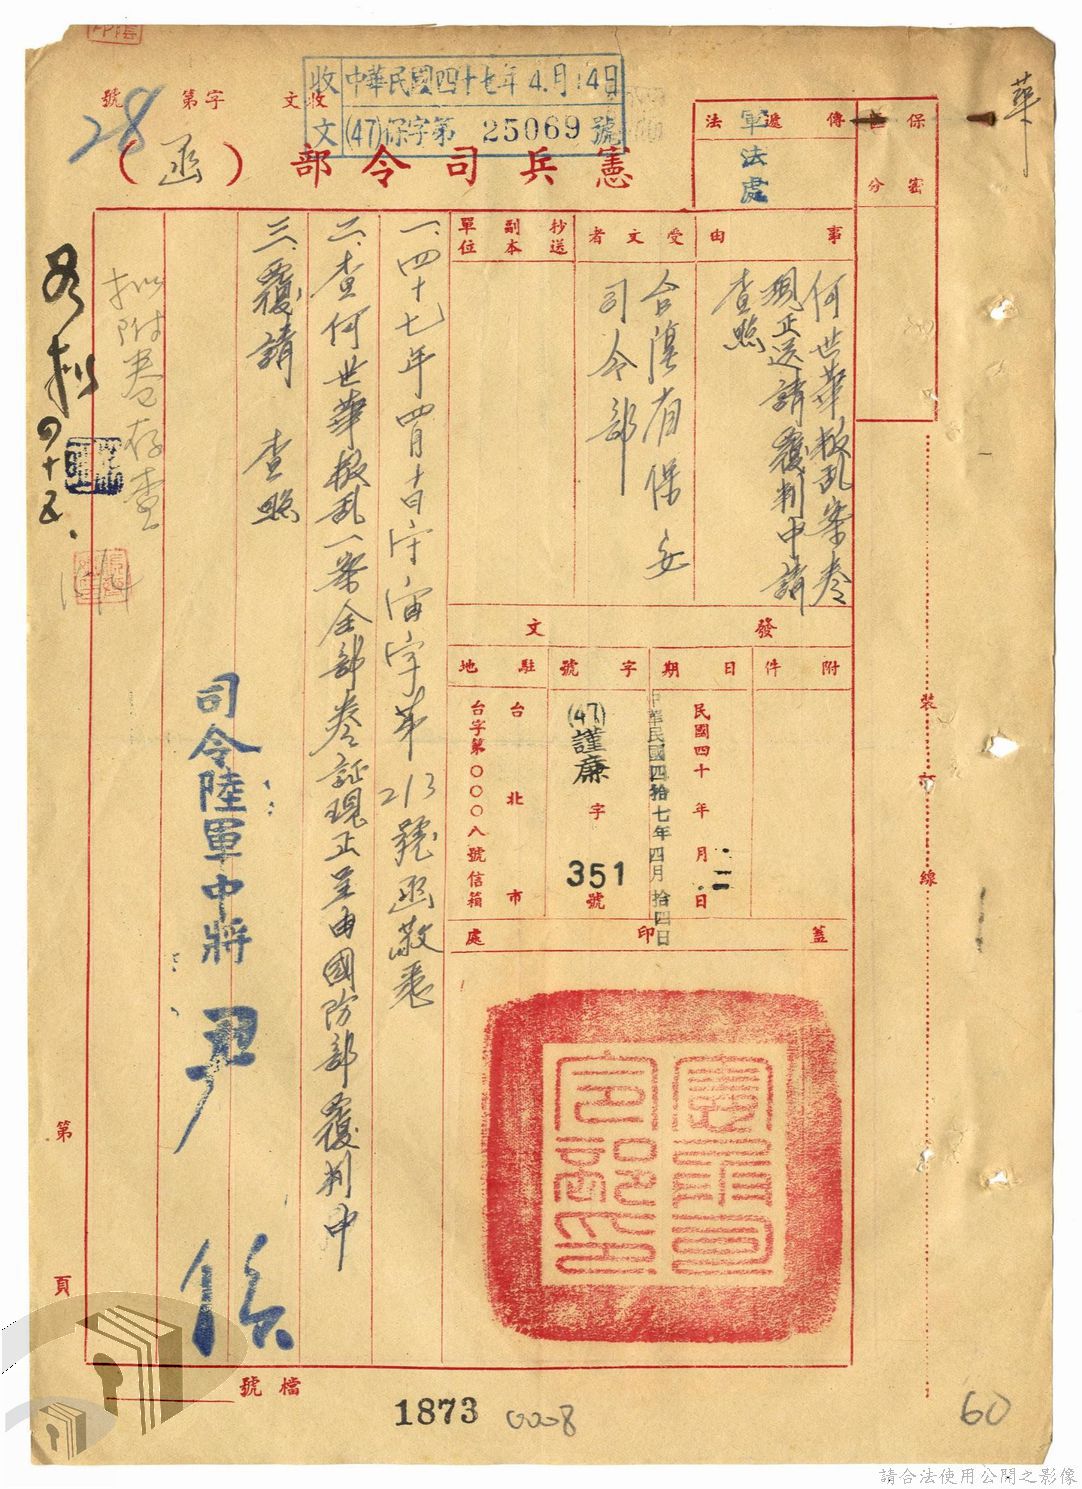 收文 中華民國四十七年4月14日
(47)保字第25069號
收文 字第 28 號
憲兵司令部(函)
保密區分
傳遞法 軍法處
華
事由
何世華叛乱案卷
現正送請覆判中請
查照
受文者
台灣省保安
司令部
抄送副本單位
發文
附件
日期
民國四十年月日
中華民國四拾七年四月拾四日
字號
(47)謹廉字351號
駐地
台北市
台字第〇〇〇八號信箱
蓋印處
憲兵司令部印
一、四十七年四月十日守宙字第213號函敬悉
二、查何世華叛乱一案全部卷証現正呈由國防部覆判中
三、覆請 查照
司令陸軍中將 尹俊
拟附卷存查
裝訂線
第頁
檔號
1873
0008
60
請合法使用公開之影像